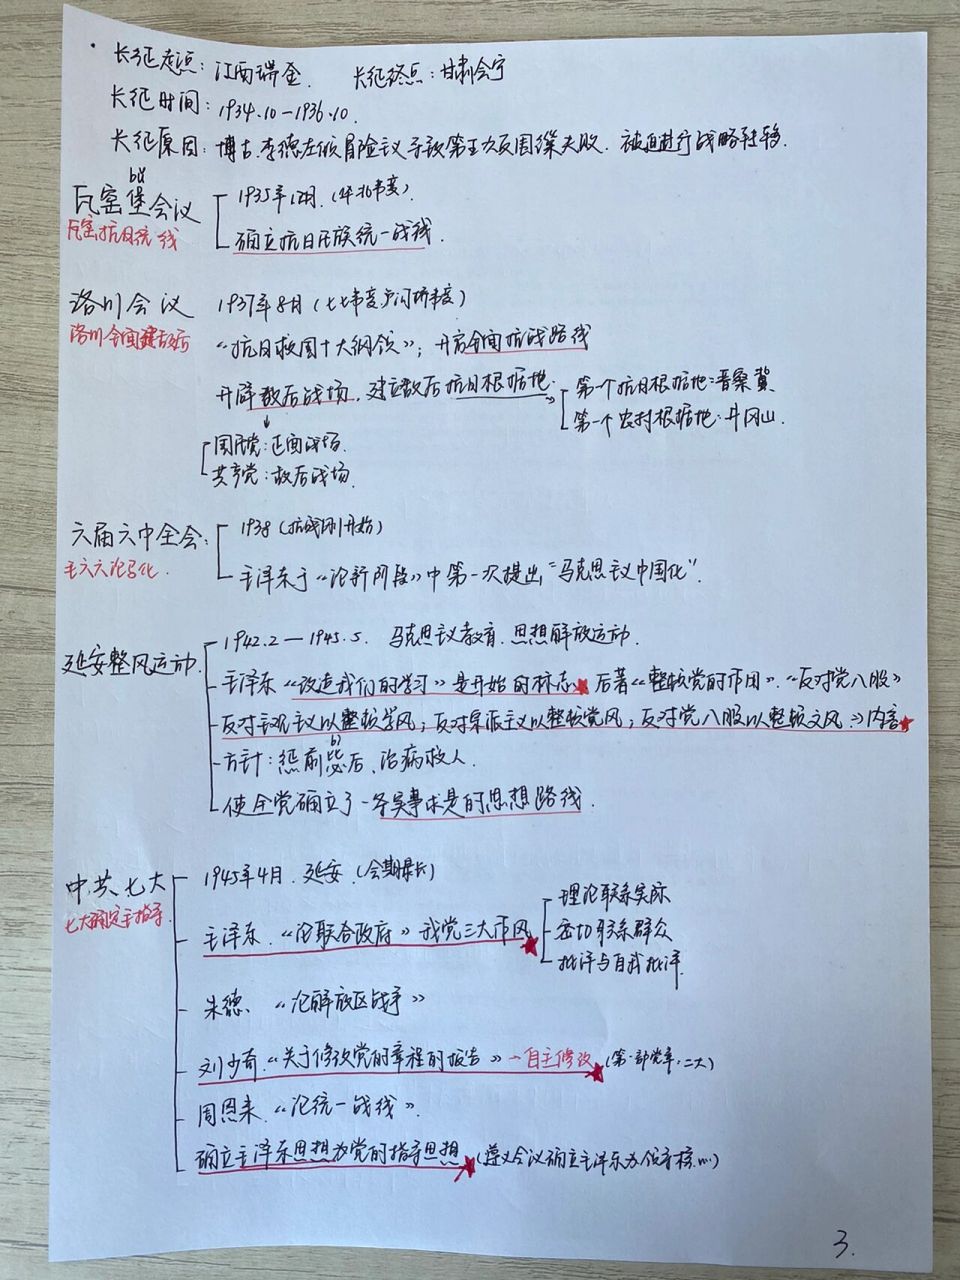 · 长征起点：江西瑞金. 长征终点：甘肃会宁
长征时间：1934.10—1936.10.
长征原因：博古.李德左倾冒险主义导致第五次反围剿失败. 被迫进行战略转移.
bǔ
瓦窑堡会议
1935年12月.(华北事变)
瓦窑抗日统一线
确立抗日民族统一战线.
洛川会议 1937年8月(七七事变卢沟桥事变)
洛川全面建敌后 “抗日救国十大纲领”；开启全面抗战路线
开辟敌后战场. 建立敌后抗日根据地. → 第一个抗日根据地：晋察冀
第一个农村根据地：井冈山.
国民党：正面战场.
共产党：敌后战场.
六届六中全会：
1938 (抗战刚开始)
毛六六论马化.
毛泽东于《论新阶段》中第一次提出“马克思主义中国化”.
1942.2—1945.5. 马克思主义教育.思想解放运动.
延安整风运动.
毛泽东《改造我们的学习》是开始的标志★ 后著《整顿党的作风》.《反对党八股》
反对主观主义以整顿学风；反对宗派主义以整顿党风；反对党八股以整顿文风.⇒内容★
bì
方针：惩前毖后、治病救人.
使全党确立了一条实事求是的思想路线.
中共七大
1945年4月. 延安.(会期最长)
七大确定毛指导.
毛泽东.《论联合政府》我党三大作风★
理论联系实际
密切联系群众
批评与自我批评.
朱德、《论解放区战争》
刘少奇.《关于修改党的章程的报告》→自主修改★(第一部党章.二大)
周恩来.《论统一战线》.
确立毛泽东思想为党的指导思想★(遵义会议确立毛泽东为领导核……)
3.